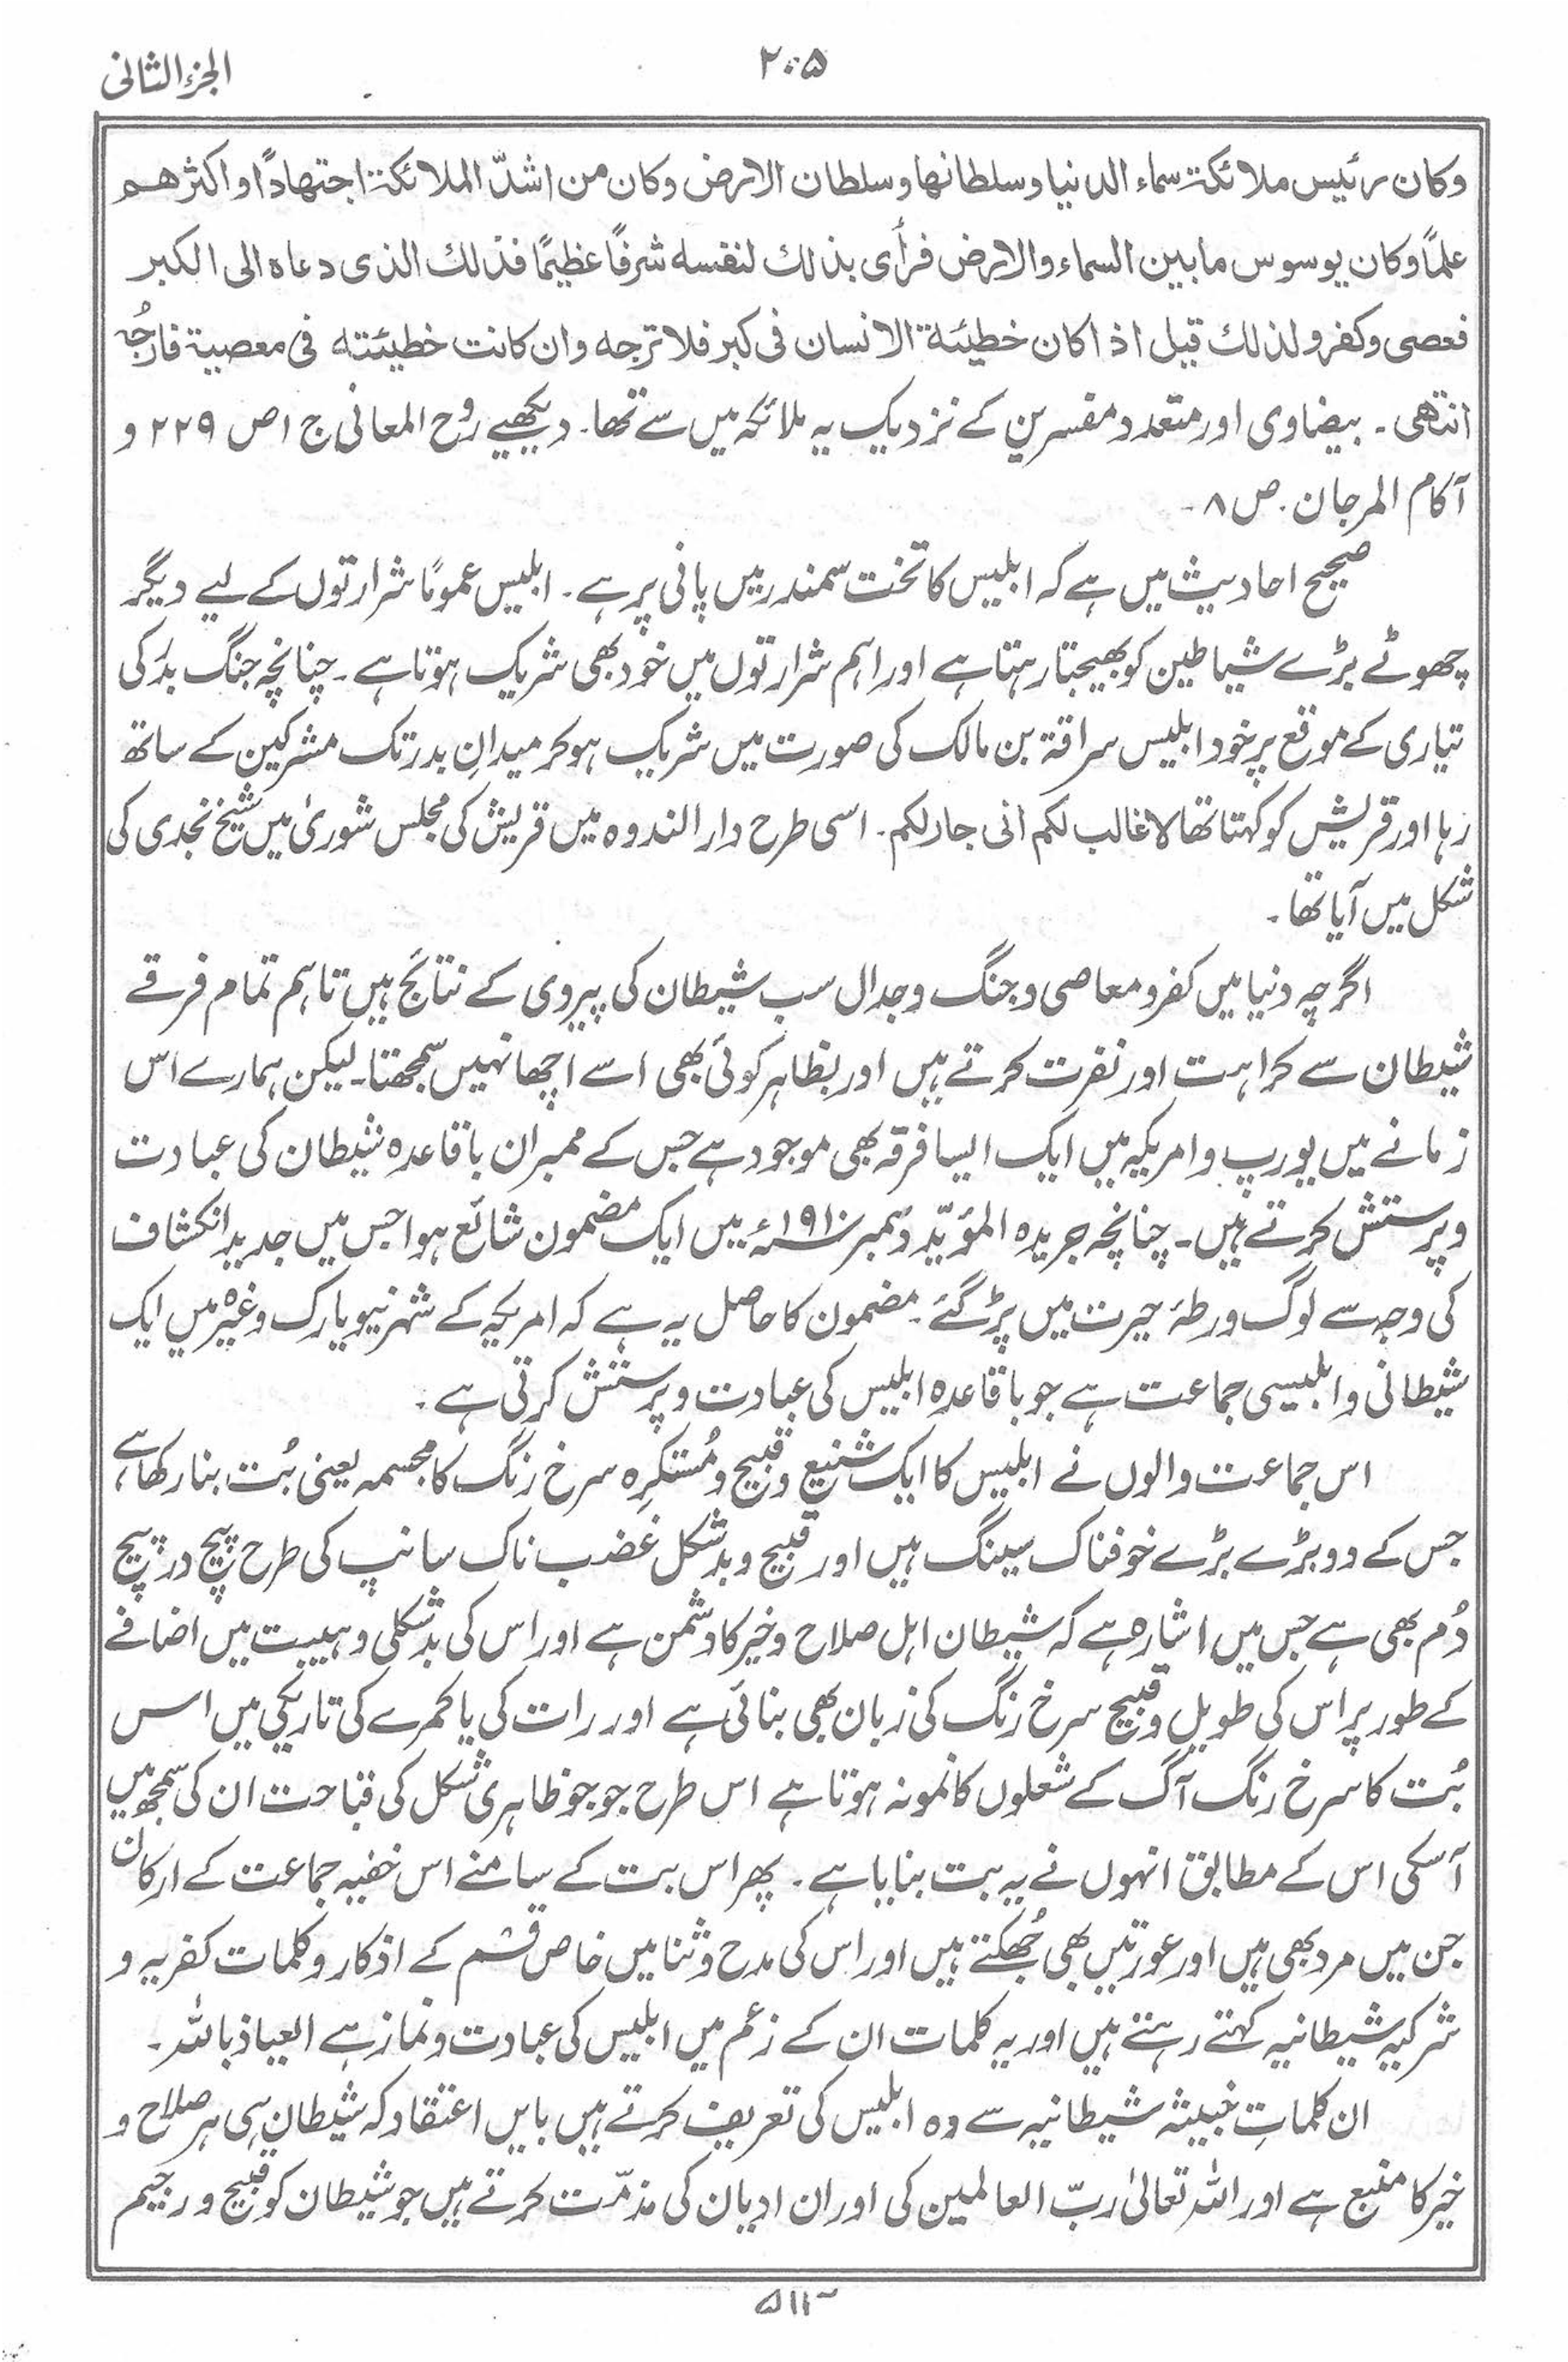 الجزء الثانی
۲۰۵
وکان رئیس ملائکۃ سماء الدنیا وسلطانھا وسلطان الارض وکان من اشدّ الملائکۃ اجتھادًا و اکثرھم
علمًا وکان یوسوس مابین السماء والارض فرأی بذلك لنفسه شرفًا عظیمًا فذلك الذی دعاه الی الکبر
فعصی وکفر ولذلك قیل اذا کان خطیئة الانسان فی کبر فلا ترجه وان کانت خطیئته فی معصیة فارجُه
انتھی ۔ بیضاوی اور متعدد مفسرین کے نزدیک یہ ملائکہ میں سے تھا۔ دیکھیے روح المعانی ج ۱ ص ۲۲۹ و
آکام المرجان۔ ص ۸ ۔
صحیح احادیث میں ہے کہ ابلیس کا تخت سمندر میں پانی پر ہے ۔ ابلیس عمومًا شرارتوں کے لیے دیگر
چھوٹے بڑے شیاطین کو بھیجتا رہتا ہے اور اہم شرارتوں میں خود بھی شریک ہوتا ہے ۔ چنانچہ جنگ بدر کی
تیاری کے موقع پر خود ابلیس سراقۃ بن مالک کی صورت میں شریک ہو کر میدانِ بدر تک مشرکین کے ساتھ
رہا اور قریش کو کہتا تھا لا غالب لکم انی جار لکم ۔ اسی طرح دار الندوہ میں قریش کی مجلس شوریٰ میں شیخ نجدی کی
شکل میں آیا تھا ۔
اگرچہ دنیا میں کفر و معاصی و جنگ و جدال سب شیطان کی پیروی کے نتائج ہیں تاہم تمام فرقے
شیطان سے کراہت اور نفرت کرتے ہیں اور بظاہر کوئی بھی اسے اچھا نہیں سمجھتا ۔ لیکن ہمارے اس
زمانے میں یورپ و امریکہ میں ایک ایسا فرقہ بھی موجود ہے جس کے ممبران باقاعدہ شیطان کی عبادت
و پرستش کرتے ہیں ۔ چنانچہ جریدہ المؤیّد دسمبر ۱۹۱۰ء میں ایک مضمون شائع ہوا جس میں جدید انکشاف
کی وجہ سے لوگ ورطۂ حیرت میں پڑ گئے ۔ مضمون کا حاصل یہ ہے کہ امریکہ کے شہر نیویارک وغیرہ میں ایک
شیطانی و ابلیسی جماعت ہے جو باقاعدہ ابلیس کی عبادت و پرستش کرتی ہے ۔
اس جماعت والوں نے ابلیس کا ایک شنیع و قبیح و مُستکرِہ سرخ رنگ کا مجسمہ یعنی بُت بنا رکھا ہے،
جس کے دو بڑے بڑے خوفناک سینگ ہیں اور قبیح و بدشکل غضب ناک سانپ کی طرح پیچ در پیچ
دُم بھی ہے جس میں اشارہ ہے کہ شیطان اہل صلاح و خیر کا دشمن ہے اور اس کی بدشکلی و ہیبت میں اضافے
کے طور پر اس کی طویل و قبیح سرخ رنگ کی زبان بھی بنائی ہے اور رات کی یا کمرے کی تاریکی میں اس
بُت کا سرخ رنگ آگ کے شعلوں کا نمونہ ہوتا ہے اس طرح جو جو ظاہری شکل کی قباحت ان کی سمجھ میں
آسکی اس کے مطابق انہوں نے یہ بت بنایا ہے ۔ پھر اس بت کے سامنے اس خفیہ جماعت کے ارکان
جن میں مرد بھی ہیں اور عورتیں بھی جُھکتے ہیں اور اس کی مدح و ثنا میں خاص قسم کے اذکار و کلمات کفریہ و
شرکیہ شیطانیہ کہتے رہتے ہیں اور یہ کلمات ان کے زعم میں ابلیس کی عبادت و نماز ہے العیاذ باللہ ۔
ان کلماتِ خبیثہ شیطانیہ سے وہ ابلیس کی تعریف کرتے ہیں بایں اعتقاد کہ شیطان ہی ہر صلاح و
خیر کا منبع ہے اور اللہ تعالیٰ ربّ العالمین کی اور ان ادیان کی مذمّت کرتے ہیں جو شیطان کو قبیح و رجیم